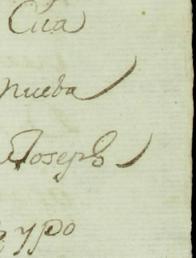 Cua
nueba
Joseph
y po